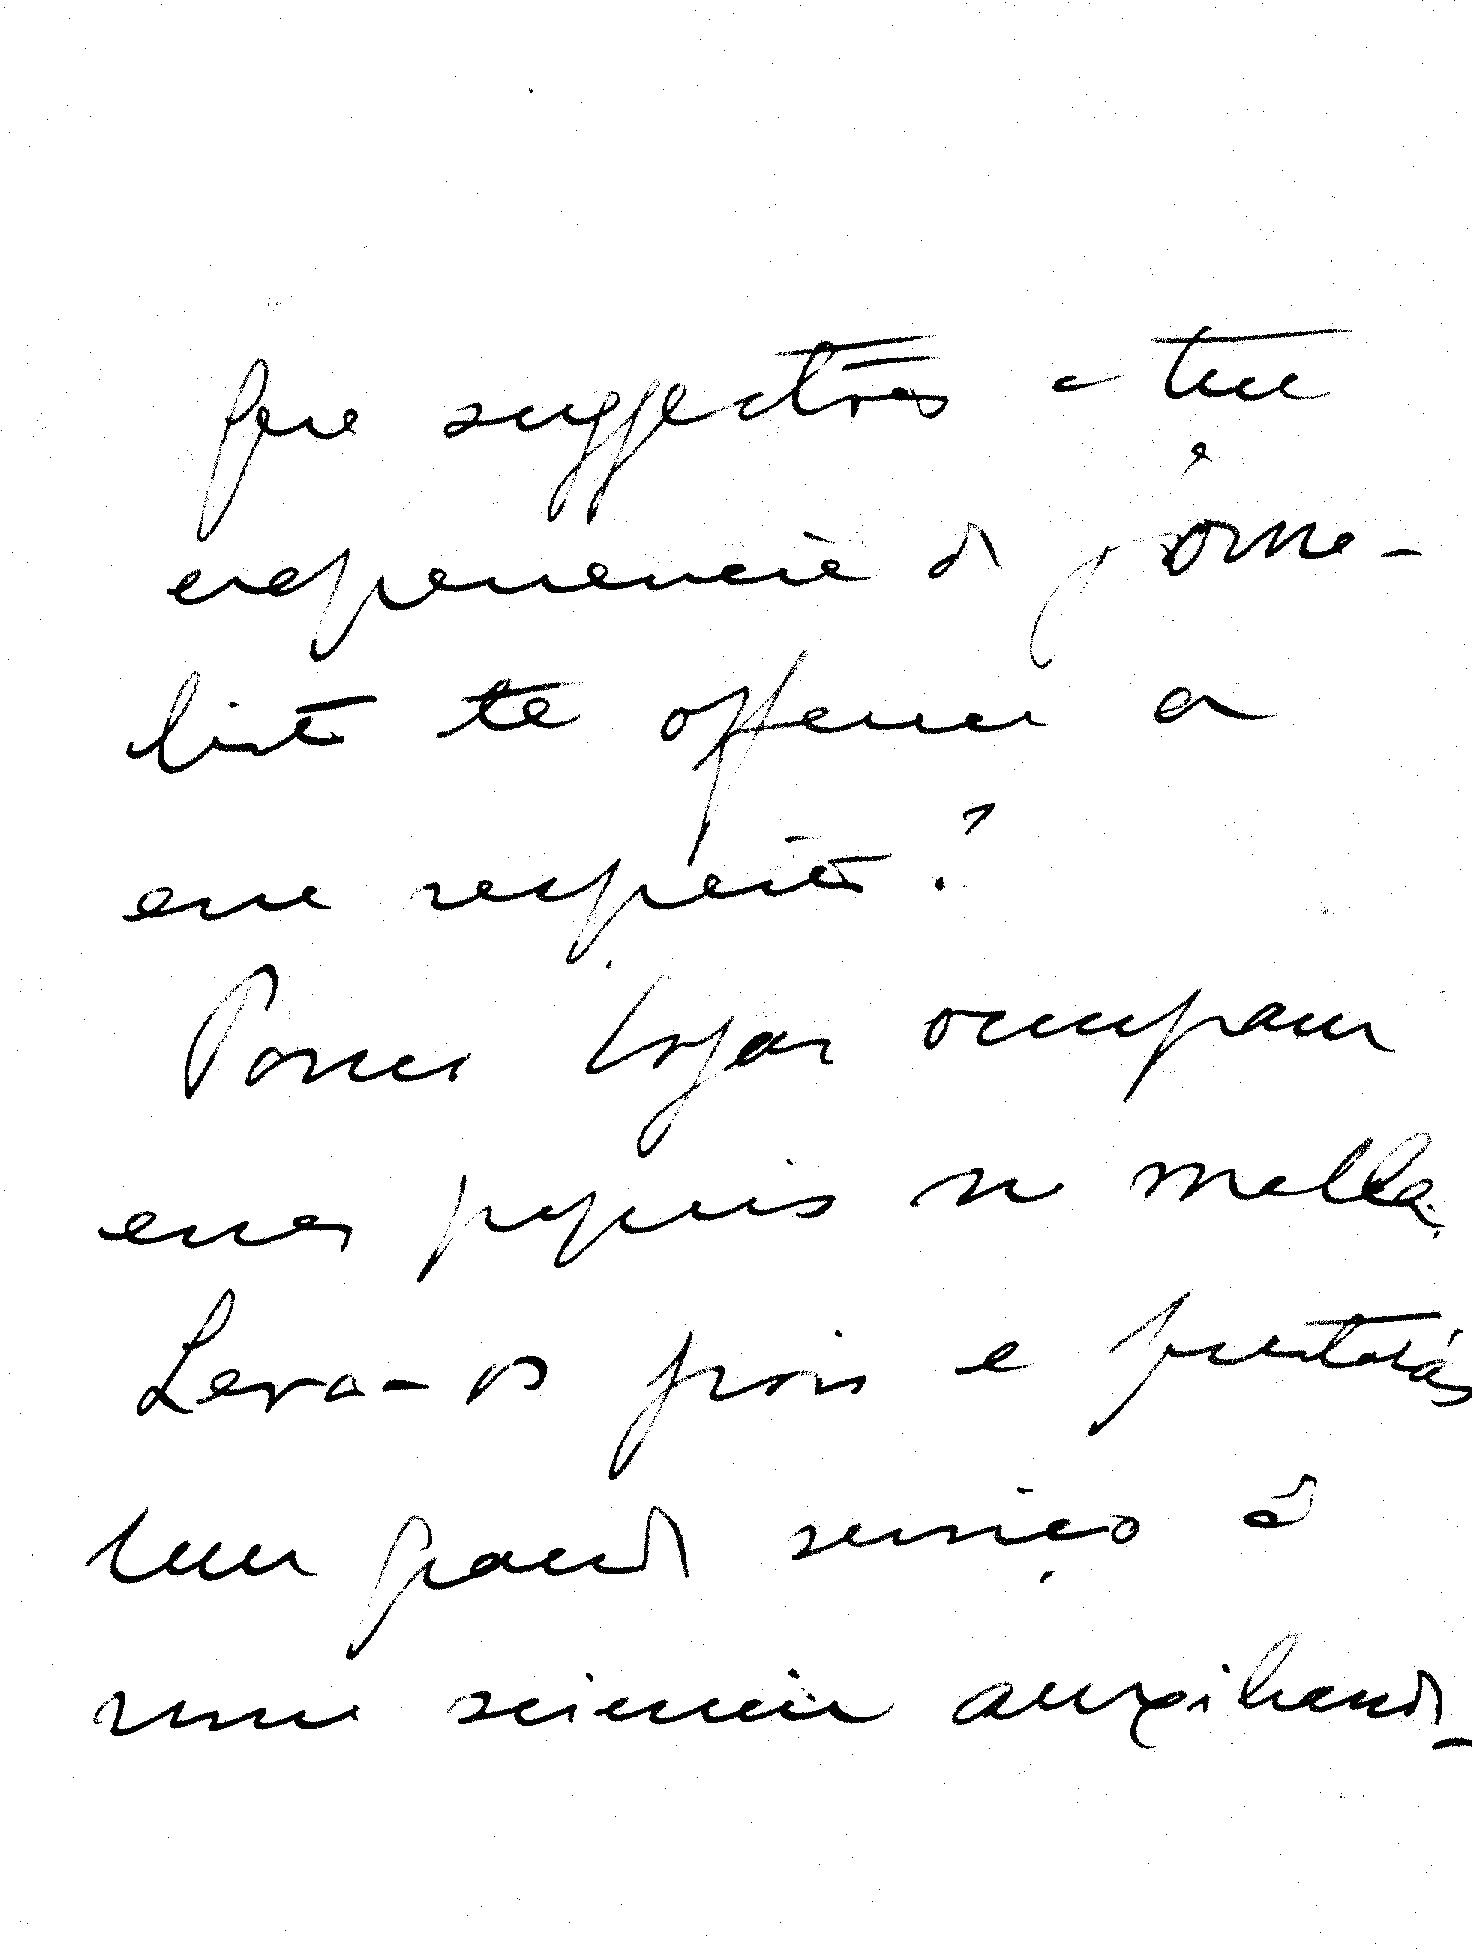 Que suggestões a tua
experiencia de jorna-
lista te offerece a
esse respeito?
Pouco logar occupam
esses papeis na malla.
Leva-os pois e prestarás
um grande serviço á
nossa sciencia auxiliando-